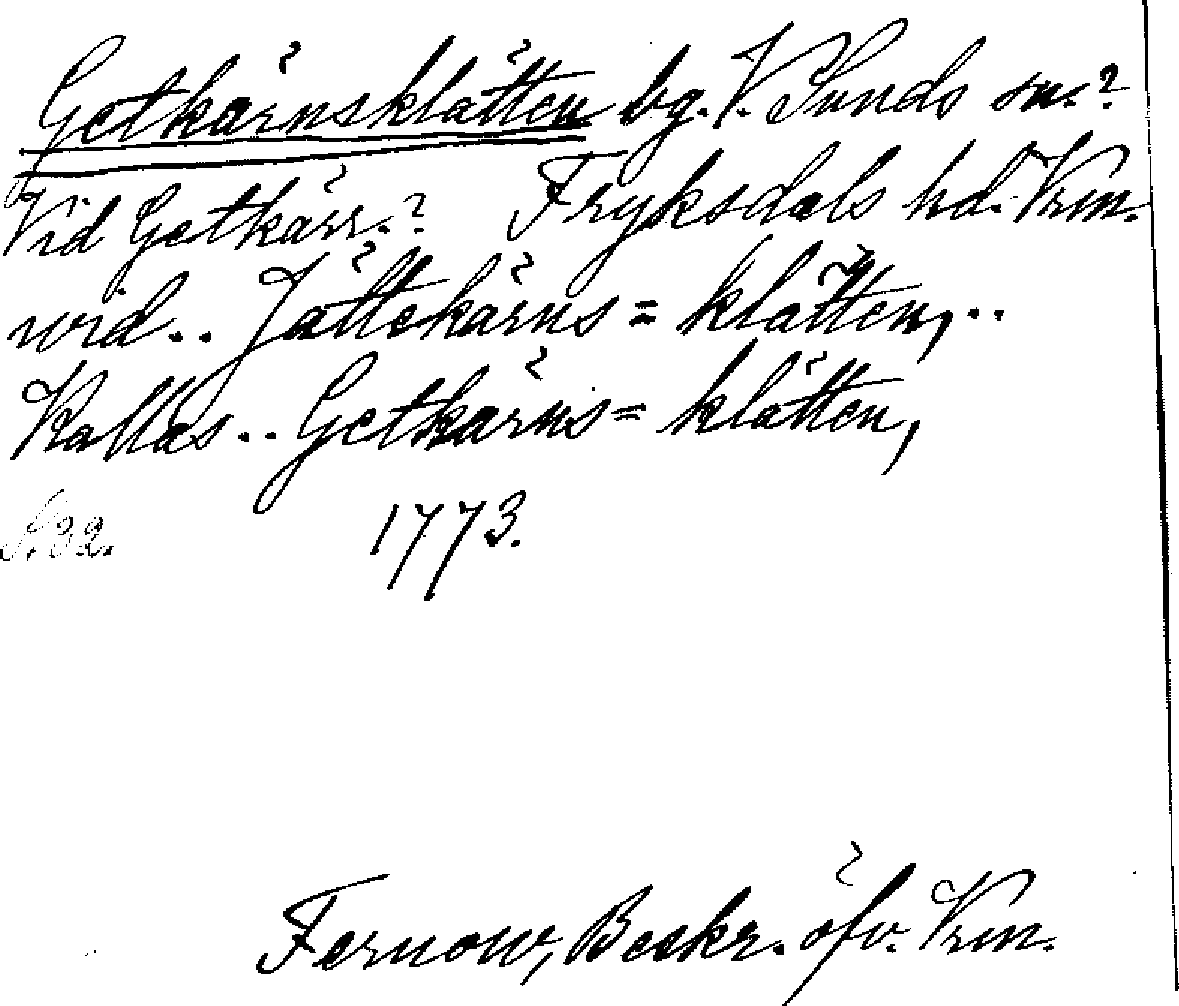 Getkärnsklätten bg. V. Sunds sn.?
Vid Getkärr.? Fryksdals hd. Vrm.
wid.. Jättekärns=klätten,..
Kallas.. Getkärns=klätten,
S. 32. 1773.
Fernow, Beskr. öfv. Vrm.